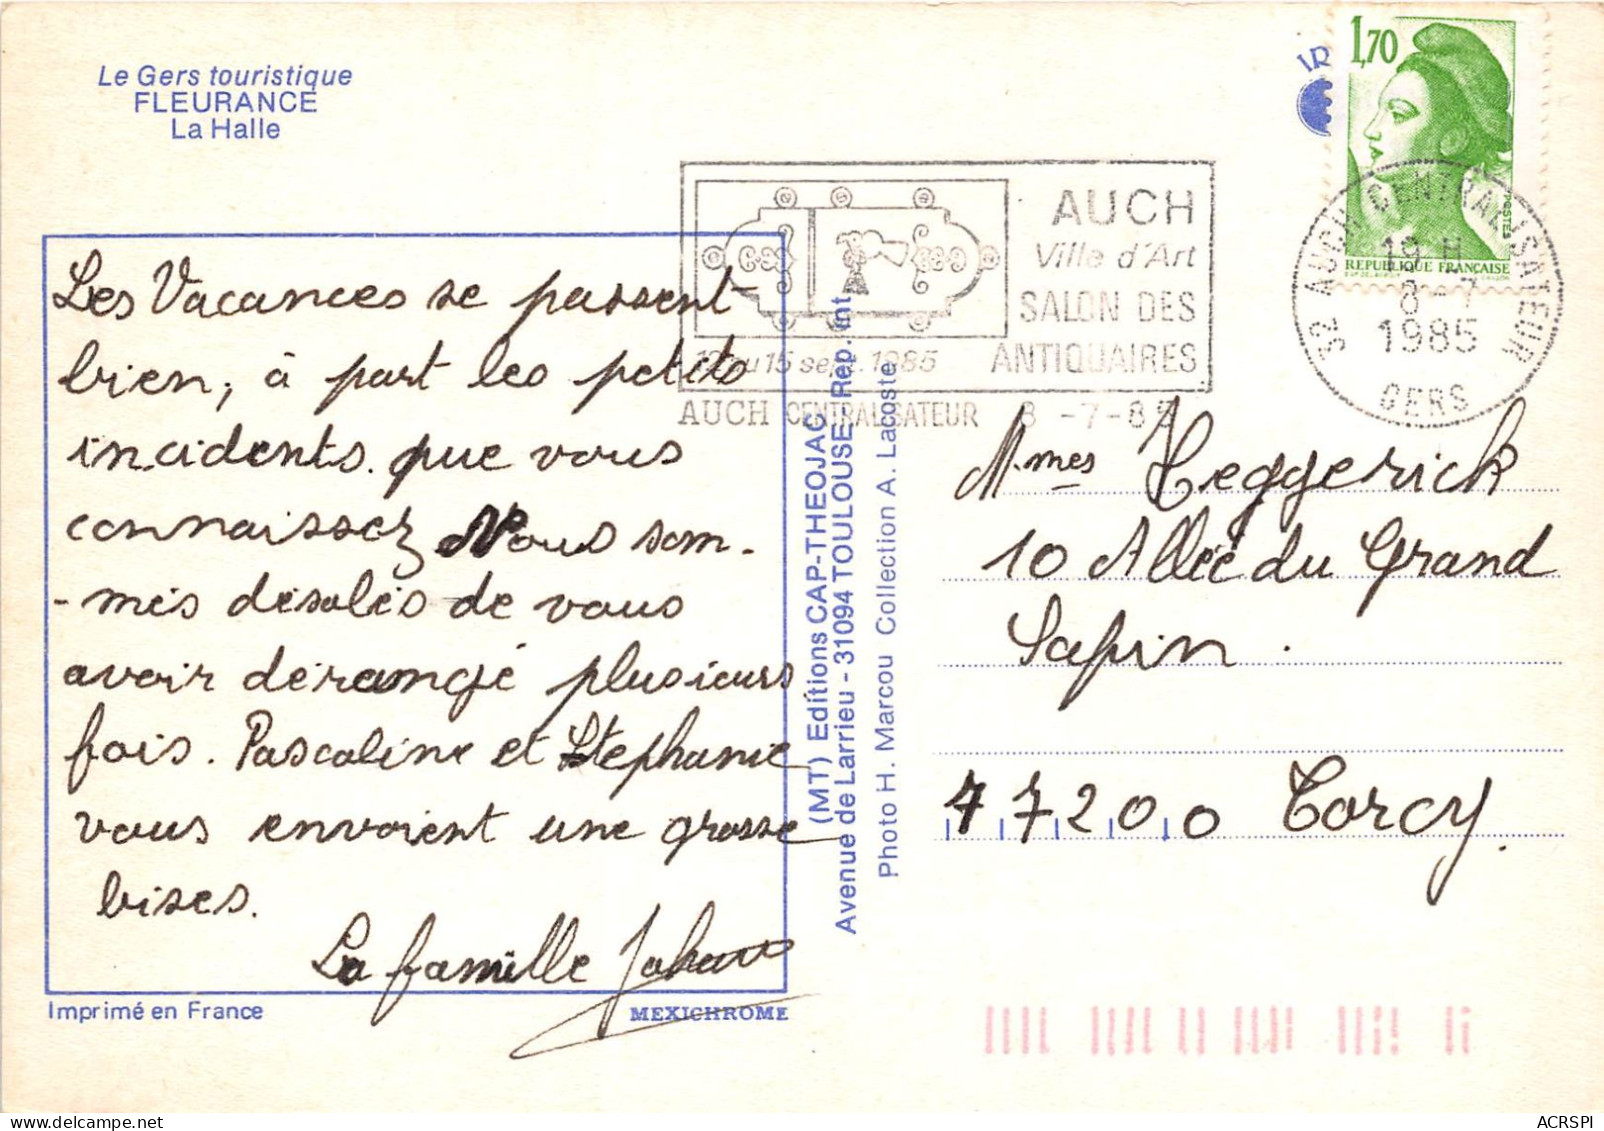 Le Gers touristique
FLEURANCE
La Halle
Les Vacances se passent
bien, à part les petits
incidents que vous
connaissez Nous som-
-mes désolés de vous
avoir dérangé plusieurs
fois. Pascaline et Stephanie
vous envoient une grosse
bises.
La famille
Imprimé en France
MEXICHROME
(MT) Editions CAP-THEOJAC
Avenue de Larrieu - 31094 TOULOUSE Rep. Int
Photo H. Marcou Collection A. Lacoste
AUCH
Ville d'Art
SALON DES
ANTIQUAIRES
au 15 sept. 1985
AUCH CENTRALISATEUR 8 -7-85
1,70
POSTES
REPUBLIQUE FRANÇAISE
32 AUCH CENTRALISATEUR
19 H
8 - 7
1985
GERS
Mmes Heggerick
10 Allée du Grand
Sapin.
77200 Torcy.
ACRSPI